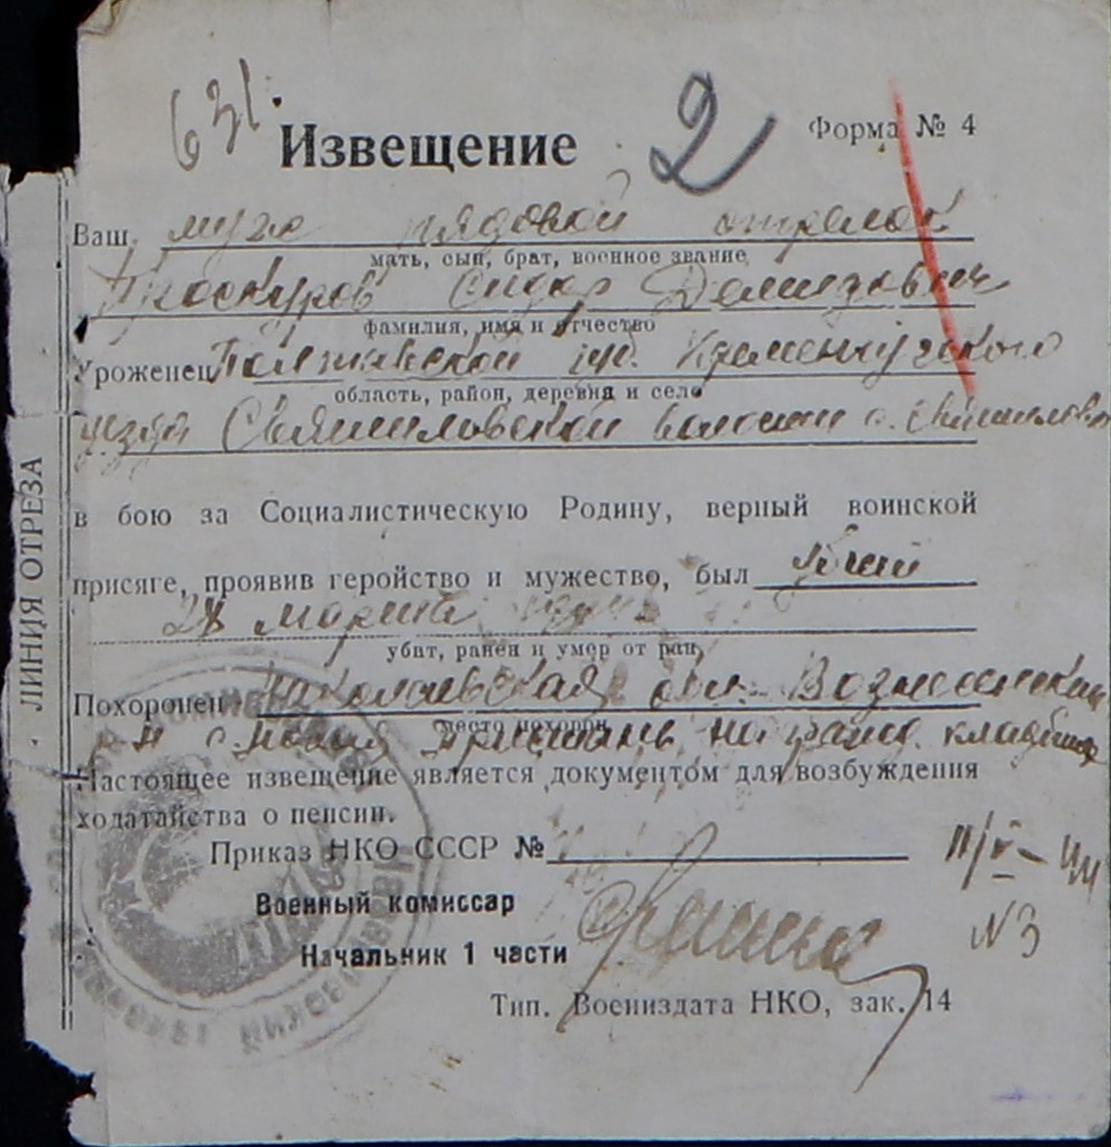 631.
Извещение 2 Форма № 4
Ваш муж рядовой стрелок
мать, сын, брат, военное звание
Проскуров Сидор Демидович
фамилия, имя и отчество
Уроженец Полтавской губ. Кременчугского
область, район, деревня и село
уезда Свяшиловской волости с.
в бою за Социалистическую Родину, верный воинской
присяге, проявив геройство и мужество, был убит
28 марта
убит, ранен и умер от ран
Похоронен Николаевская обл. Вознесенский
место похорон
р-н с. Новая Пристань на кладбище
Настоящее извещение является документом для возбуждения
ходатайства о пенсии.
Приказ НКО СССР №
11/V-44
Военный комиссар
N 3
Начальник 1 части
Тип. Воениздата НКО, зак. 14
ЛИНИЯ ОТРЕЗА